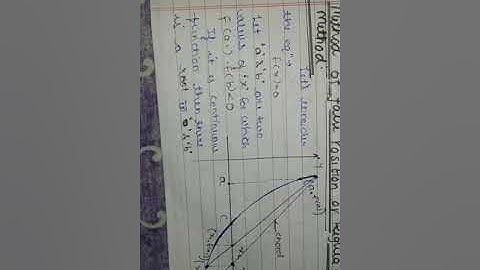 Method of false Position or Regula
Method:
Let's consider
the eqn
f(x)=0
Let 'a' & 'b' are two
values of 'x' for which
f(a) . f(b) < 0
If it is continuous
function then there
is a root in 'a' & 'b'
y
a
c
chord